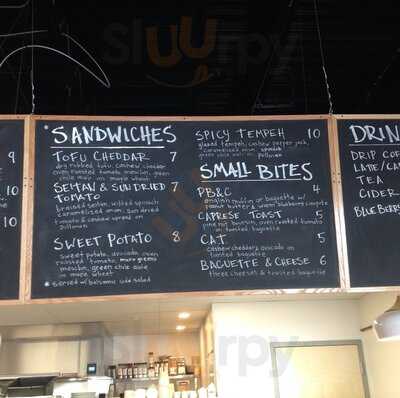 sluurpy
9
10
10
*SANDWICHES
TOFU CHEDDAR 7
dry rubbed tofu, cashew cheddar
oven roasted tomato, mesclun, green
chile mayo on maple wheat
SEITAN & SUN DRIED 7
TOMATO
braised seitan, wilted spinach
caramelized onion, sun dried
tomato & cashew spread on
pullman
SWEET POTATO 8
sweet potato, avocado, oven
roasted tomato, micro greens
mesclun, green chile aioli
on maple wheat
* served w/ balsamic side salad
SPICY TEMPEH 10
glazed tempeh, cashew pepper jack,
caramelized onion, spinach
green chile aioli on pullman
SMALL BITES
PB&C 4
english muffin or baguette w/
peanut butter & warm blueberry compote
CAPRESE TOAST 5
pine nut boursin, oven roasted tomato
on toasted baguette
C.A.T. 5
cashew cheddar, avocado on
toasted baguette
BAGUETTE & CHEESE 6
three cheeses & toasted baguette
DRIN
DRIP COF
LATTE/CA
TEA
CIDER
BLUEBERRY